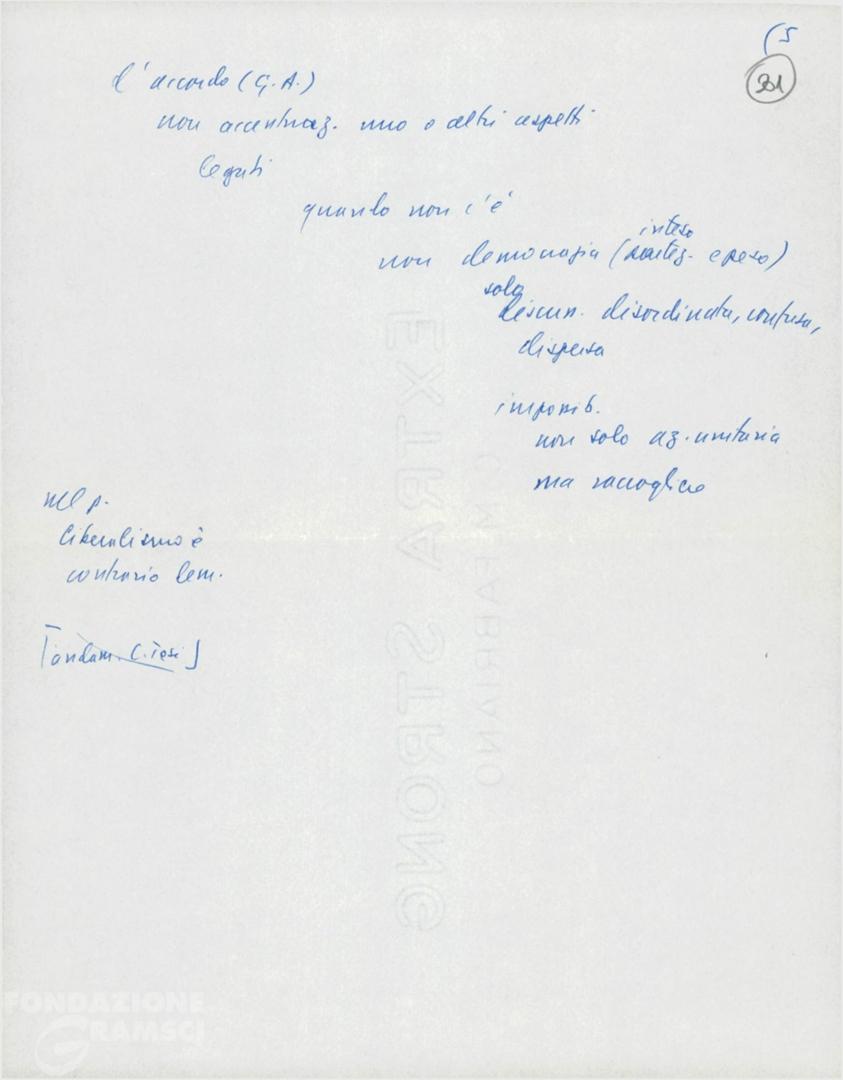 (5
201
l'accordo (G.A.)
non accentuaz. uno o altri aspetti
legati
quando non c'è
inteso
non democrazia ( e peso)
solo
discun. disordinata, confusa,
dispersa
imposib.
non solo az. unitaria
ma raccoglie
nel p.
liberalismo è
contrario dem.
[andam. C. Tesi]
EXTRA STRONG
C M FABRIANO
FONDAZIONE
GRAMSCI